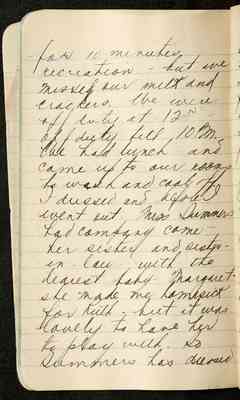 for 10 minutes
recreation - but we
missed our milk and
crackers. We were
off duty at 12
off duty till 10 P.M.
We had lunch and
came up to our rooms
to wash and cool off
I dressed and
went out. Miss Summers
had company come
her sister and sister-
in-law with the
dearest baby Margaret.
she made me homesick
for Ruth - but it was
lovely to have her
to play with. So
Summers has dressed